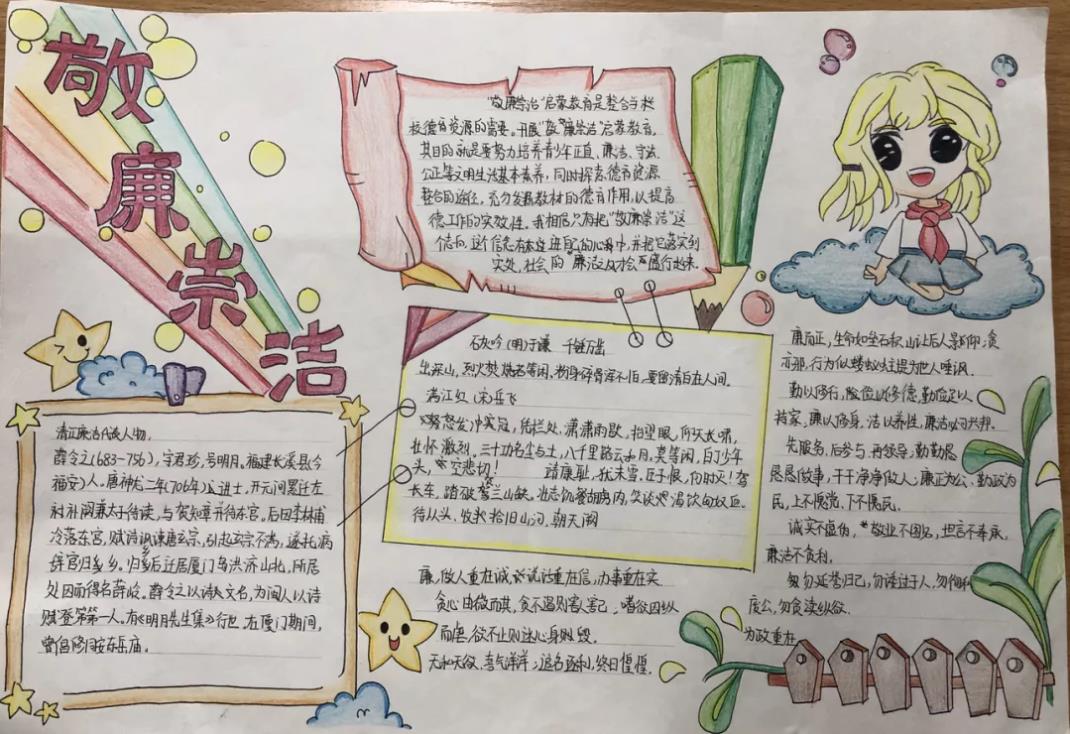 敬廉崇洁
"敬廉崇洁"启蒙教育是整合学校
校德育资源的需要。开展"敬廉崇洁"启蒙教育,
其目的就是要努力培养青少年正直、廉洁、守法、
公正等文明生活基本素养,同时探索德育资源
整合的途径,充分发掘教材的德育作用,以提高
德工作的实效性。我相信只有把"敬廉崇洁"这
个信向,这个信念 在 的心 中,并把它落实到
实处,社会的"廉洁之风才会 盛行起来。
清正廉洁代表人物,
薛令之(683-756),字君珍,号明月。福建长溪县今
福安)人。唐神龙二年(706年)公进士,开元间累迁左
补阙兼太子侍读,与贺知章并侍东宫。后因李林甫
冷落东宫,赋诗讽谏唐玄宗,引起玄宗不满,遂托病
辞官归乡。归乡后迁居厦门岛洪济山北,所居
处因而得名薛岭。薛令之以诗人文名,为闽人以诗
赋登第第一人。有《明月先生集》行世,在厦门期间,
曾倡修同安东岳庙。
石灰吟 (明)于谦 千锤万凿
出深山,烈火焚烧若等闲。粉身碎骨浑不怕,要留清白在人间。
满江红 (宋)岳飞
怒发冲冠,凭栏处,潇潇雨歇,抬望眼,仰天长啸,
壮怀激烈。三十功名尘与土,八千里路云和月,莫等闲,白了少年
头,空悲切! 靖康耻,犹未雪,臣子恨,何时灭!驾
长车,踏破贺兰山缺。壮志饥餐胡虏肉,笑谈渴饮匈奴血。
待从头,收拾旧山河,朝天阙
廉,做人重在诚,说话重在信,办事重在实
贪心由微而其,贪不遏则害人害己,嗜欲因纵
而 ,欲不止则迷心身则毁。
天和天欲,喜气洋洋;追名逐利,终日惶惶。
廉而正,生命如垒石积山让后人景仰;贪
亦邪,行为似蝼蚁蛀堤为世人唾讽。
勤以修行,俭以修德,勤俭足以
持家,廉以修身,洁以养性,廉洁必可兴邦。
先服务,后参与,再领导;勤勤恳
恳恳做事,干干净净做人;廉正为公,勤政为
民,上不愧党,下不愧民。
诚实不虚伪,敬业不图名,坦言不奉承,
廉洁不贪利。
勿延誉归己,勿诿过于人,勿徇私
废公,勿贪渎纵欲。
为政重在